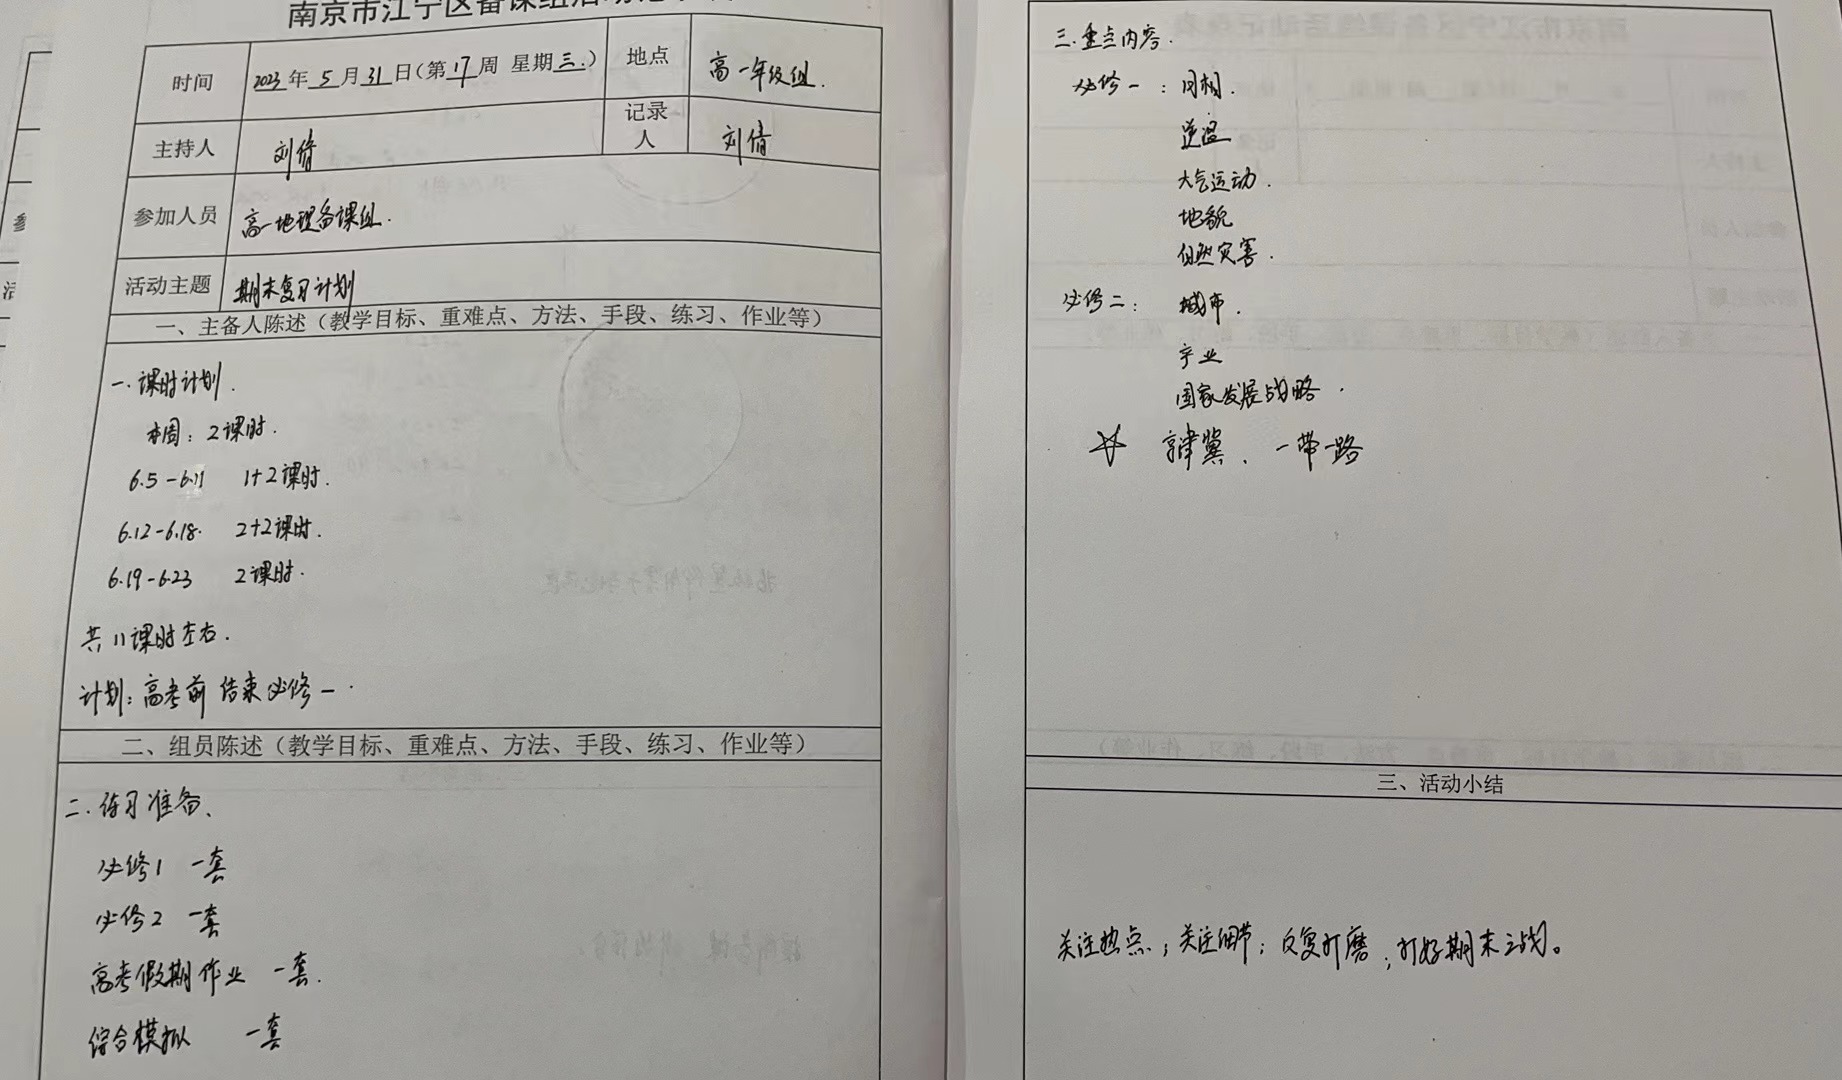 南京市江宁区备课组活动记录表
时间
2023年5月31日(第17周 星期三.)
地点
高一年级组.
主持人
刘倩
记录人
刘倩
参加人员
高一地理备课组.
活动主题
期末复习计划
一、主备人陈述（教学目标、重难点、方法、手段、练习、作业等）
一.课时计划.
本周：2课时.
6.5-6.11 1+2课时.
6.12-6.18. 2+2课时.
6.19-6.23 2课时.
共11课时左右.
计划：高考前结束必修一.
二、组员陈述（教学目标、重难点、方法、手段、练习、作业等）
二.练习准备、
必修1 一套
必修2 一套
高考假期作业 一套.
综合模拟 一套
三.重点内容.
必修一：月相.
逆温
大气运动.
地貌
自然灾害.
必修二：城市.
产业
国家发展战略.
☆ 京津冀、一带一路
三、活动小结
关注热点；关注细节；反复打磨；打好期末之战。